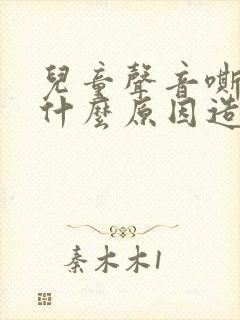 兒童聲音嘶
什麼原因造
秦木木1